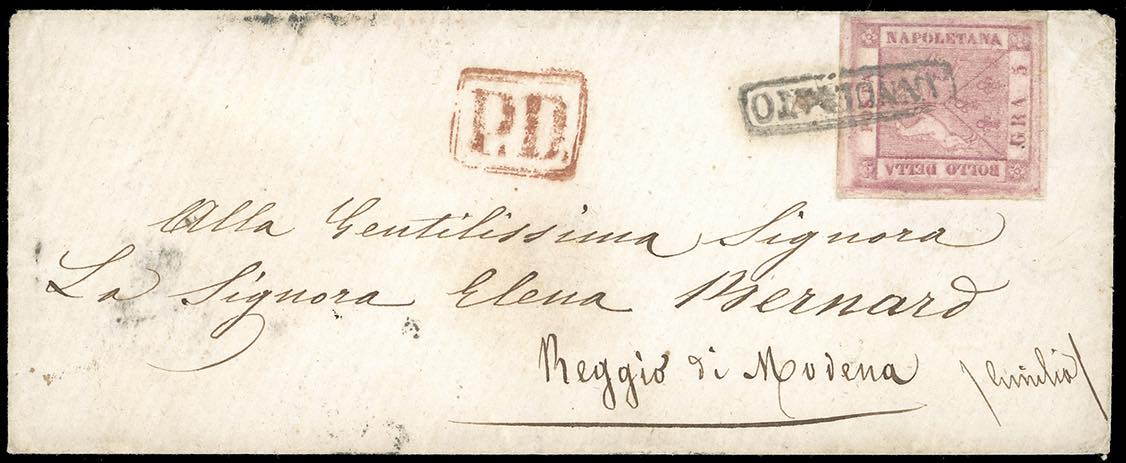 NAPOLETANA
GRA 5
BOLLO DELLA
ANNULLATO
P.D.
Alla Gentilissima Signora
La Signora Elena Bernard
Reggio di Modena /Emilia/